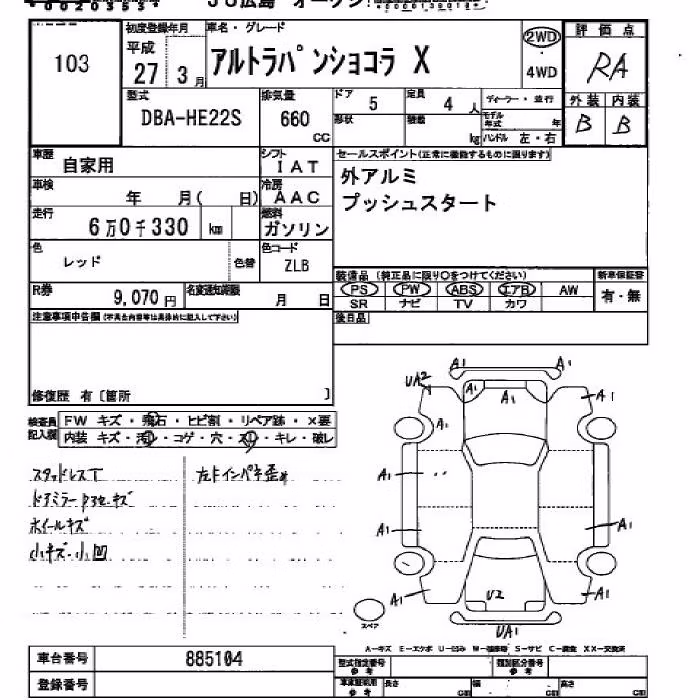 JU広島 オークション
103
初度登録年月
平成
27 3月
車名・グレード
アルトラパンショコラ X
2WD
・
4WD
評価点
RA
外装 内装
B B
型式
DBA-HE22S
排気量
660 CC
ドア 5
定員 4 人
ディーラー・並行
形状
積載 kg
モデル年式 年
ハンドル 左・右
車歴
自家用
シフト
IAT
セールスポイント(正常に機能するものに限ります)
外アルミ
プッシュスタート
車検
年 月( 日)
冷房
AAC
走行
6万0千330 km
燃料
ガソリン
色
レッド
色替
色コード
ZLB
装備品 (純正品に限り○をつけてください)
新車保証書
PS PW ABS エアB AW
SR ナビ TV カワ
有・無
R券
9,070 円
名変通知期限
月 日
注意事項申告欄(不具合内容等は具体的に記入して下さい)
後日品
修復歴 有〔箇所 〕
検査員記入欄
FW キズ・飛石・ヒビ割・リペア跡・X要
内装 キズ・汚レ・コゲ・穴・スレ・キレ・破レ
スタッドレスT
左Fインパネ歪み
ドアミラーキズ
ホイールキズ
小キズ・小凹
A1 A1
UA2 A1 A1
A1
A1
A1 A1
A1 U2 A1
UA1
スペア
A-キズ E-エクボ U-凹み W-補修跡 S-サビ C-腐食 XX-交換済
車台番号 885104
登録番号
型式指定番号 参考
類別区分番号 参考
車庫証明用 参考
長さ cm
幅 cm
高さ cm